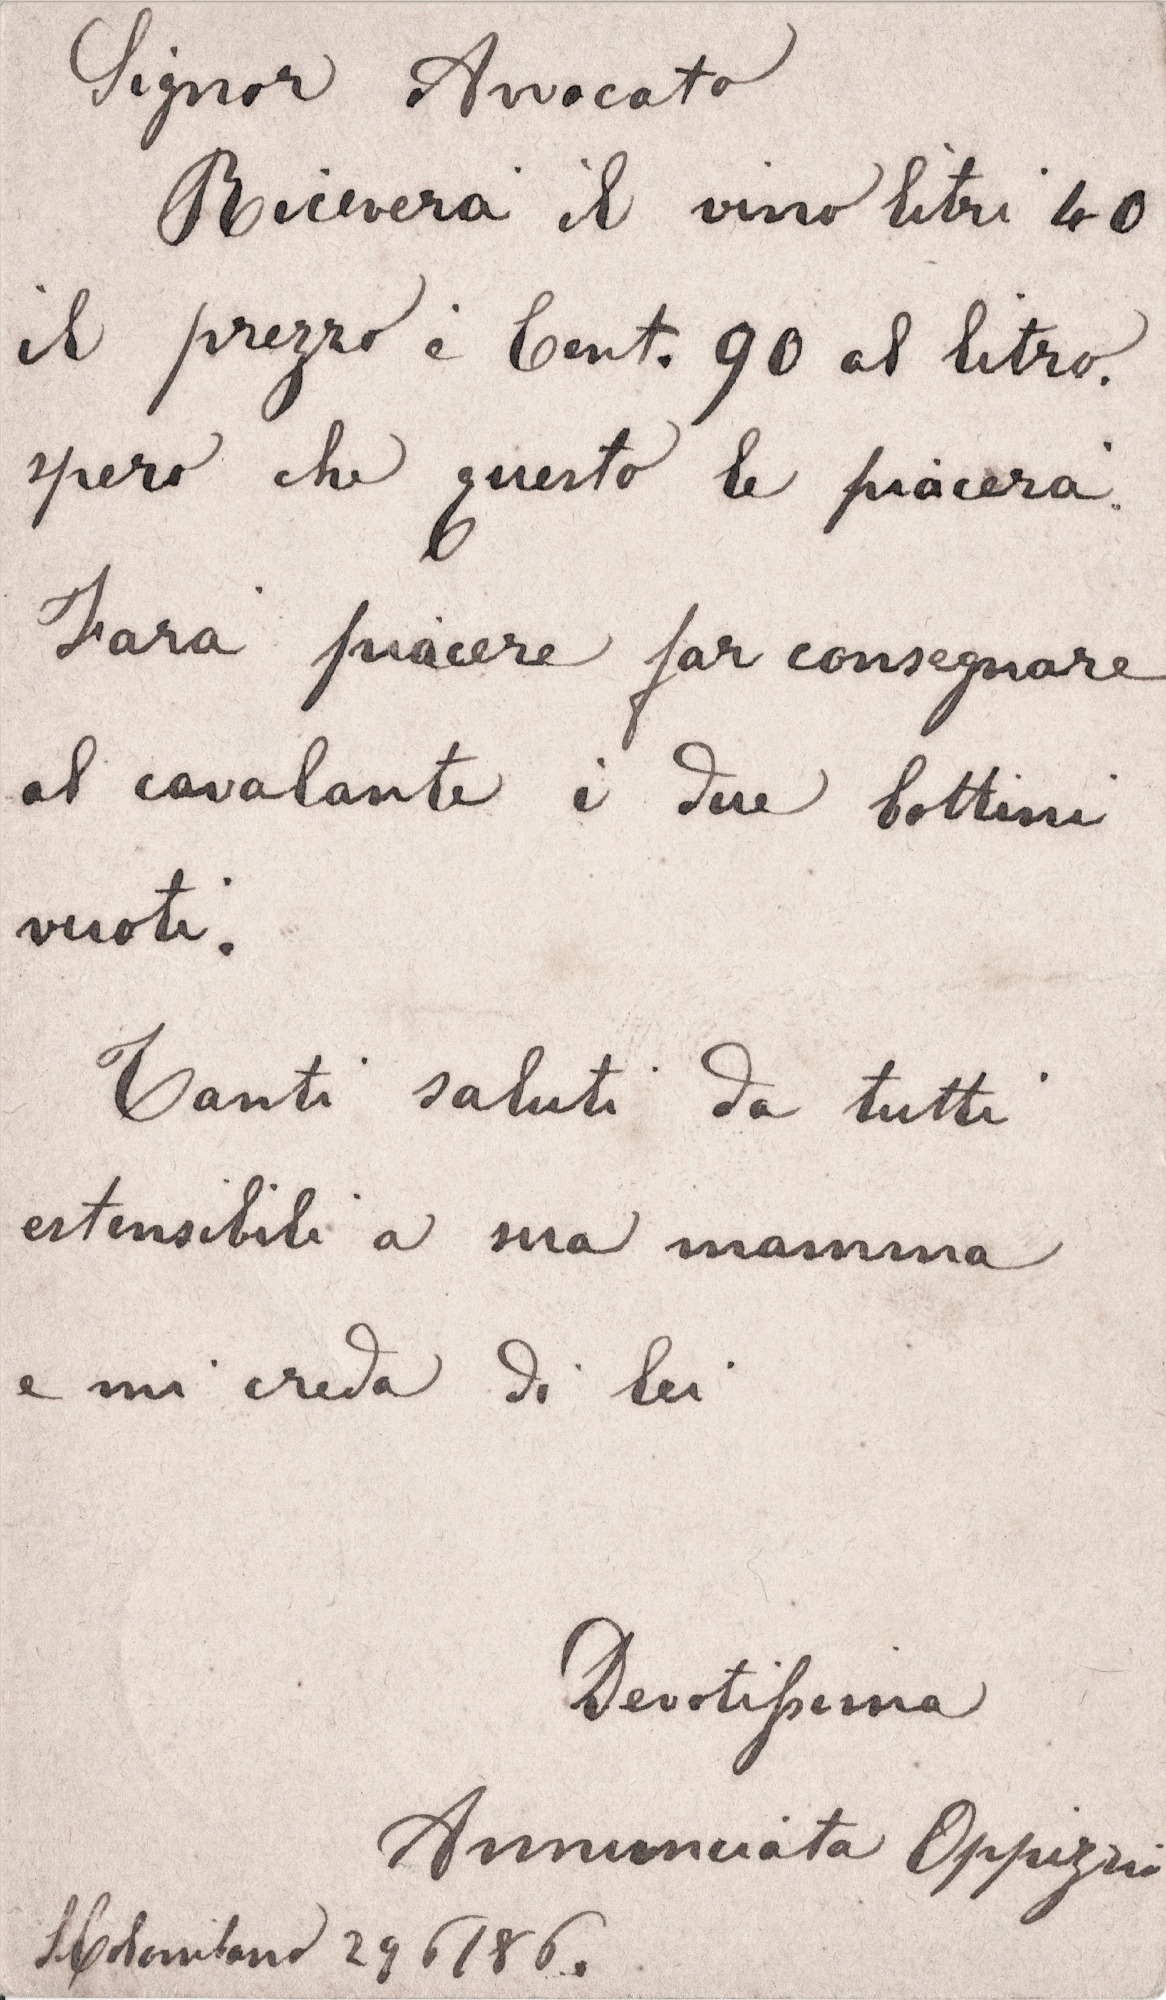 Signor Avvocato
Riceverà il vino litri 40
il prezzo è Cent. 90 al litro.
spero che questo le piacerà.
Farà piacere far consegnare
al cavalante i due bottini
vuoti.
Tanti saluti da tutti
estensibili a sua mamma
e mi creda di lei
Devotissima
Annunciata Oppizzi
S. Colombano 29 6/86.